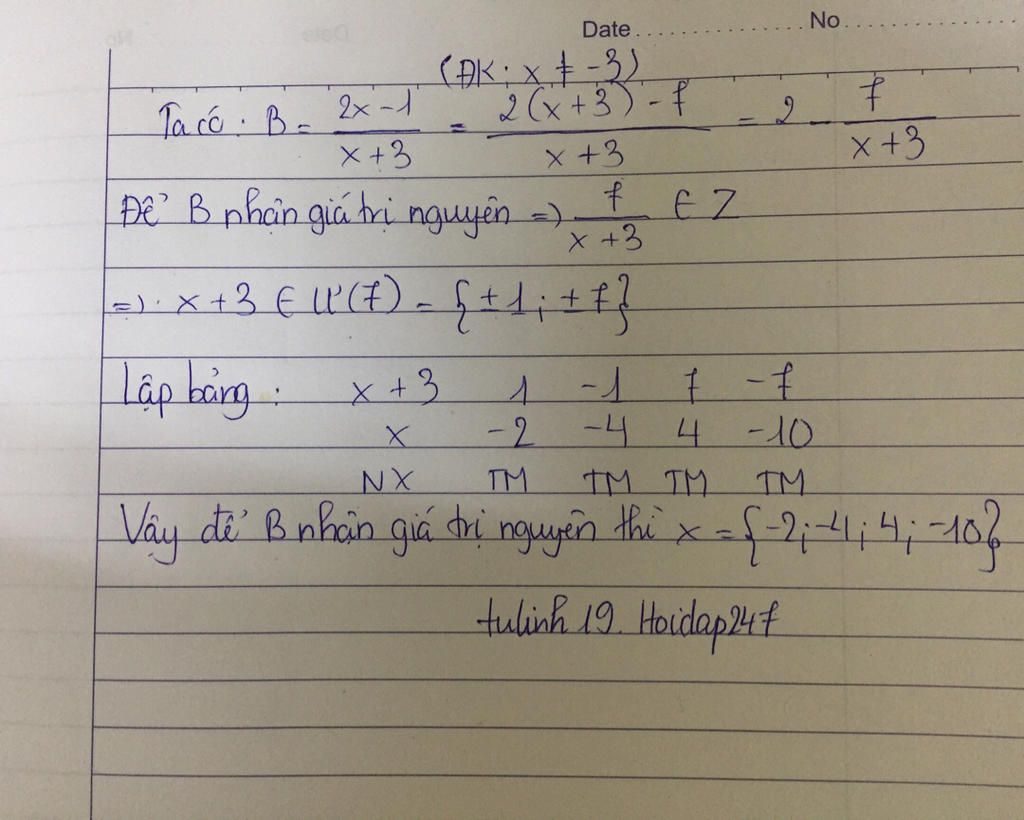 Date .................. No ..................
(ĐK: x ≠ -3)
Ta có: B = (2x - 1)/(x + 3) = (2(x + 3) - 7)/(x + 3) = 2 - 7/(x + 3)
Để B nhận giá trị nguyên => 7/(x + 3) ∈ Z
=> x + 3 ∈ Ư(7) = {±1; ±7}
Lập bảng: x + 3 1 -1 7 -7
x -2 -4 4 -10
NX TM TM TM TM
Vậy để B nhận giá trị nguyên thì x = {-2; -4; 4; -10}
tulinh19. Hoidap247